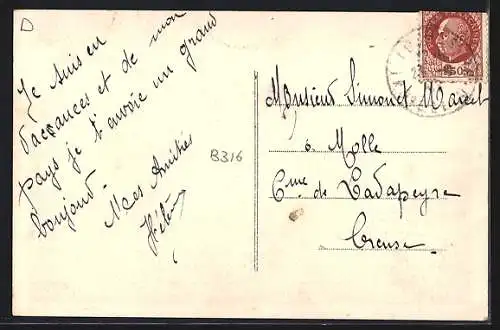 D
Je suis en
vacances et de mon
pays je t'envoie un grand
bonjour.
Mes Amitiés
Hélène
B316
Monsieur Simonet Marcel
à Molle
Cne de Ladapeyre
Creuse